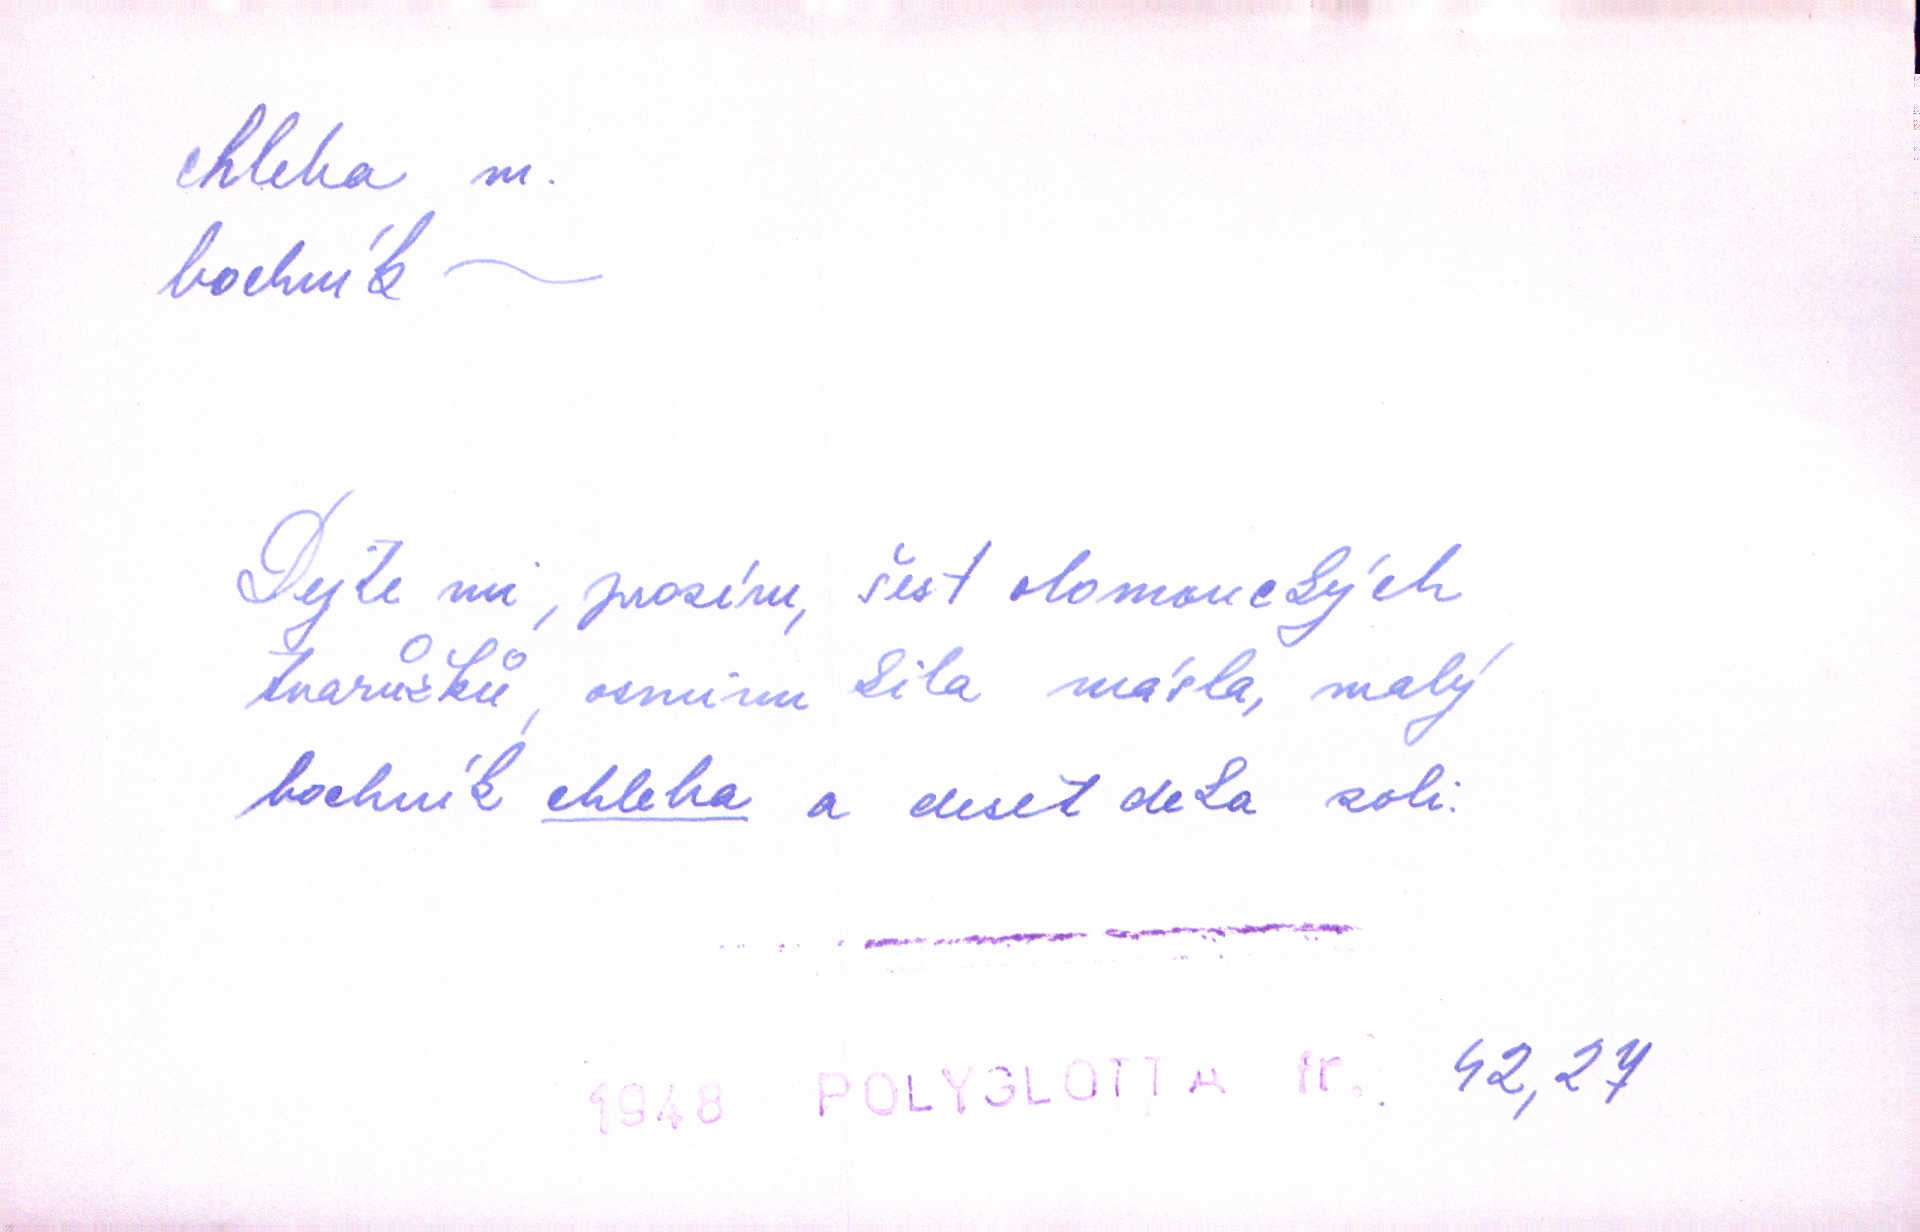 chleba m.
bochník
Dejte mi, prosím, šest olomouckých
tvarůžků, osminu kila másla, malý
bochník chleba a deset deka soli.
1948 POLYGLOTTA fr. 42,27